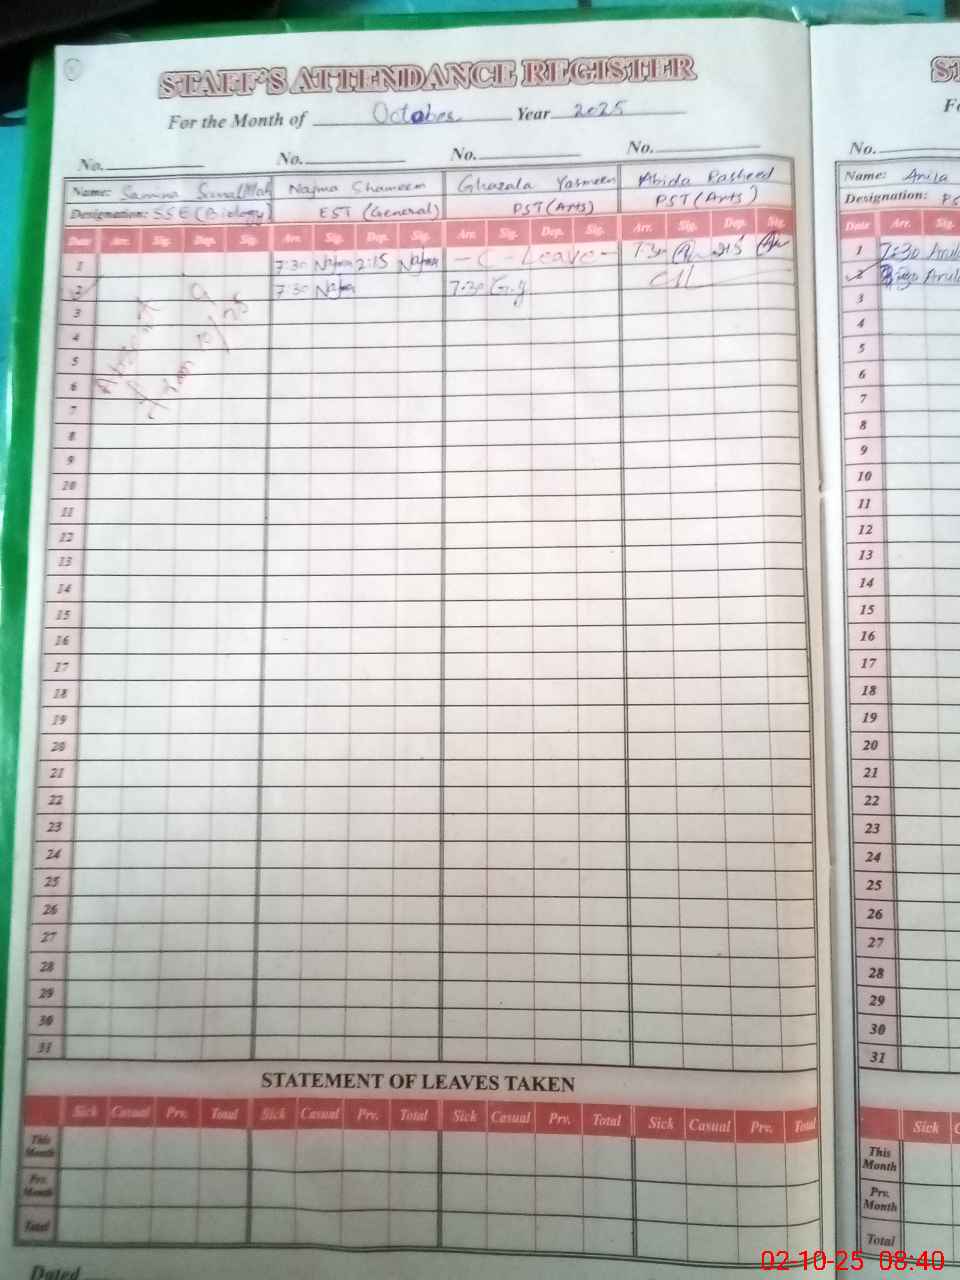 STAFF'S ATTENDANCE REGISTER
For the Month of October Year 2025
No. No. No. No.
Name: Samina Najma Shameem Ghazala Yasmeen Abida Rasheed
Designation: SSE (Biology) EST (General) PST (Arts) PST (Arts)
Date Arr. Sig. Dep. Sig. Arr. Sig. Dep. Sig. Arr. Sig. Dep. Sig. Arr. Sig. Dep. Sig.
1 7:30 Najma 2:15 Najma - C - Leave - 7:30 2:15
2 7:30 Najma 7:30 G.y
3
4
5
6
7
8
9
10
11
12
13
14
15
16
17
18
19
20
21
22
23
24
25
26
27
28
29
30
31
STATEMENT OF LEAVES TAKEN
Sick Casual Prv. Total Sick Casual Prv. Total Sick Casual Prv. Total Sick Casual Prv. Total
This Month
Prv. Month
Total
Dated
No.
Name: Anila
Designation: PS
Date Arr. Sig.
1 7:30
2
3
4
5
6
7
8
9
10
11
12
13
14
15
16
17
18
19
20
21
22
23
24
25
26
27
28
29
30
31
Sick
This Month
Prv. Month
Total
02-10-25 08:40